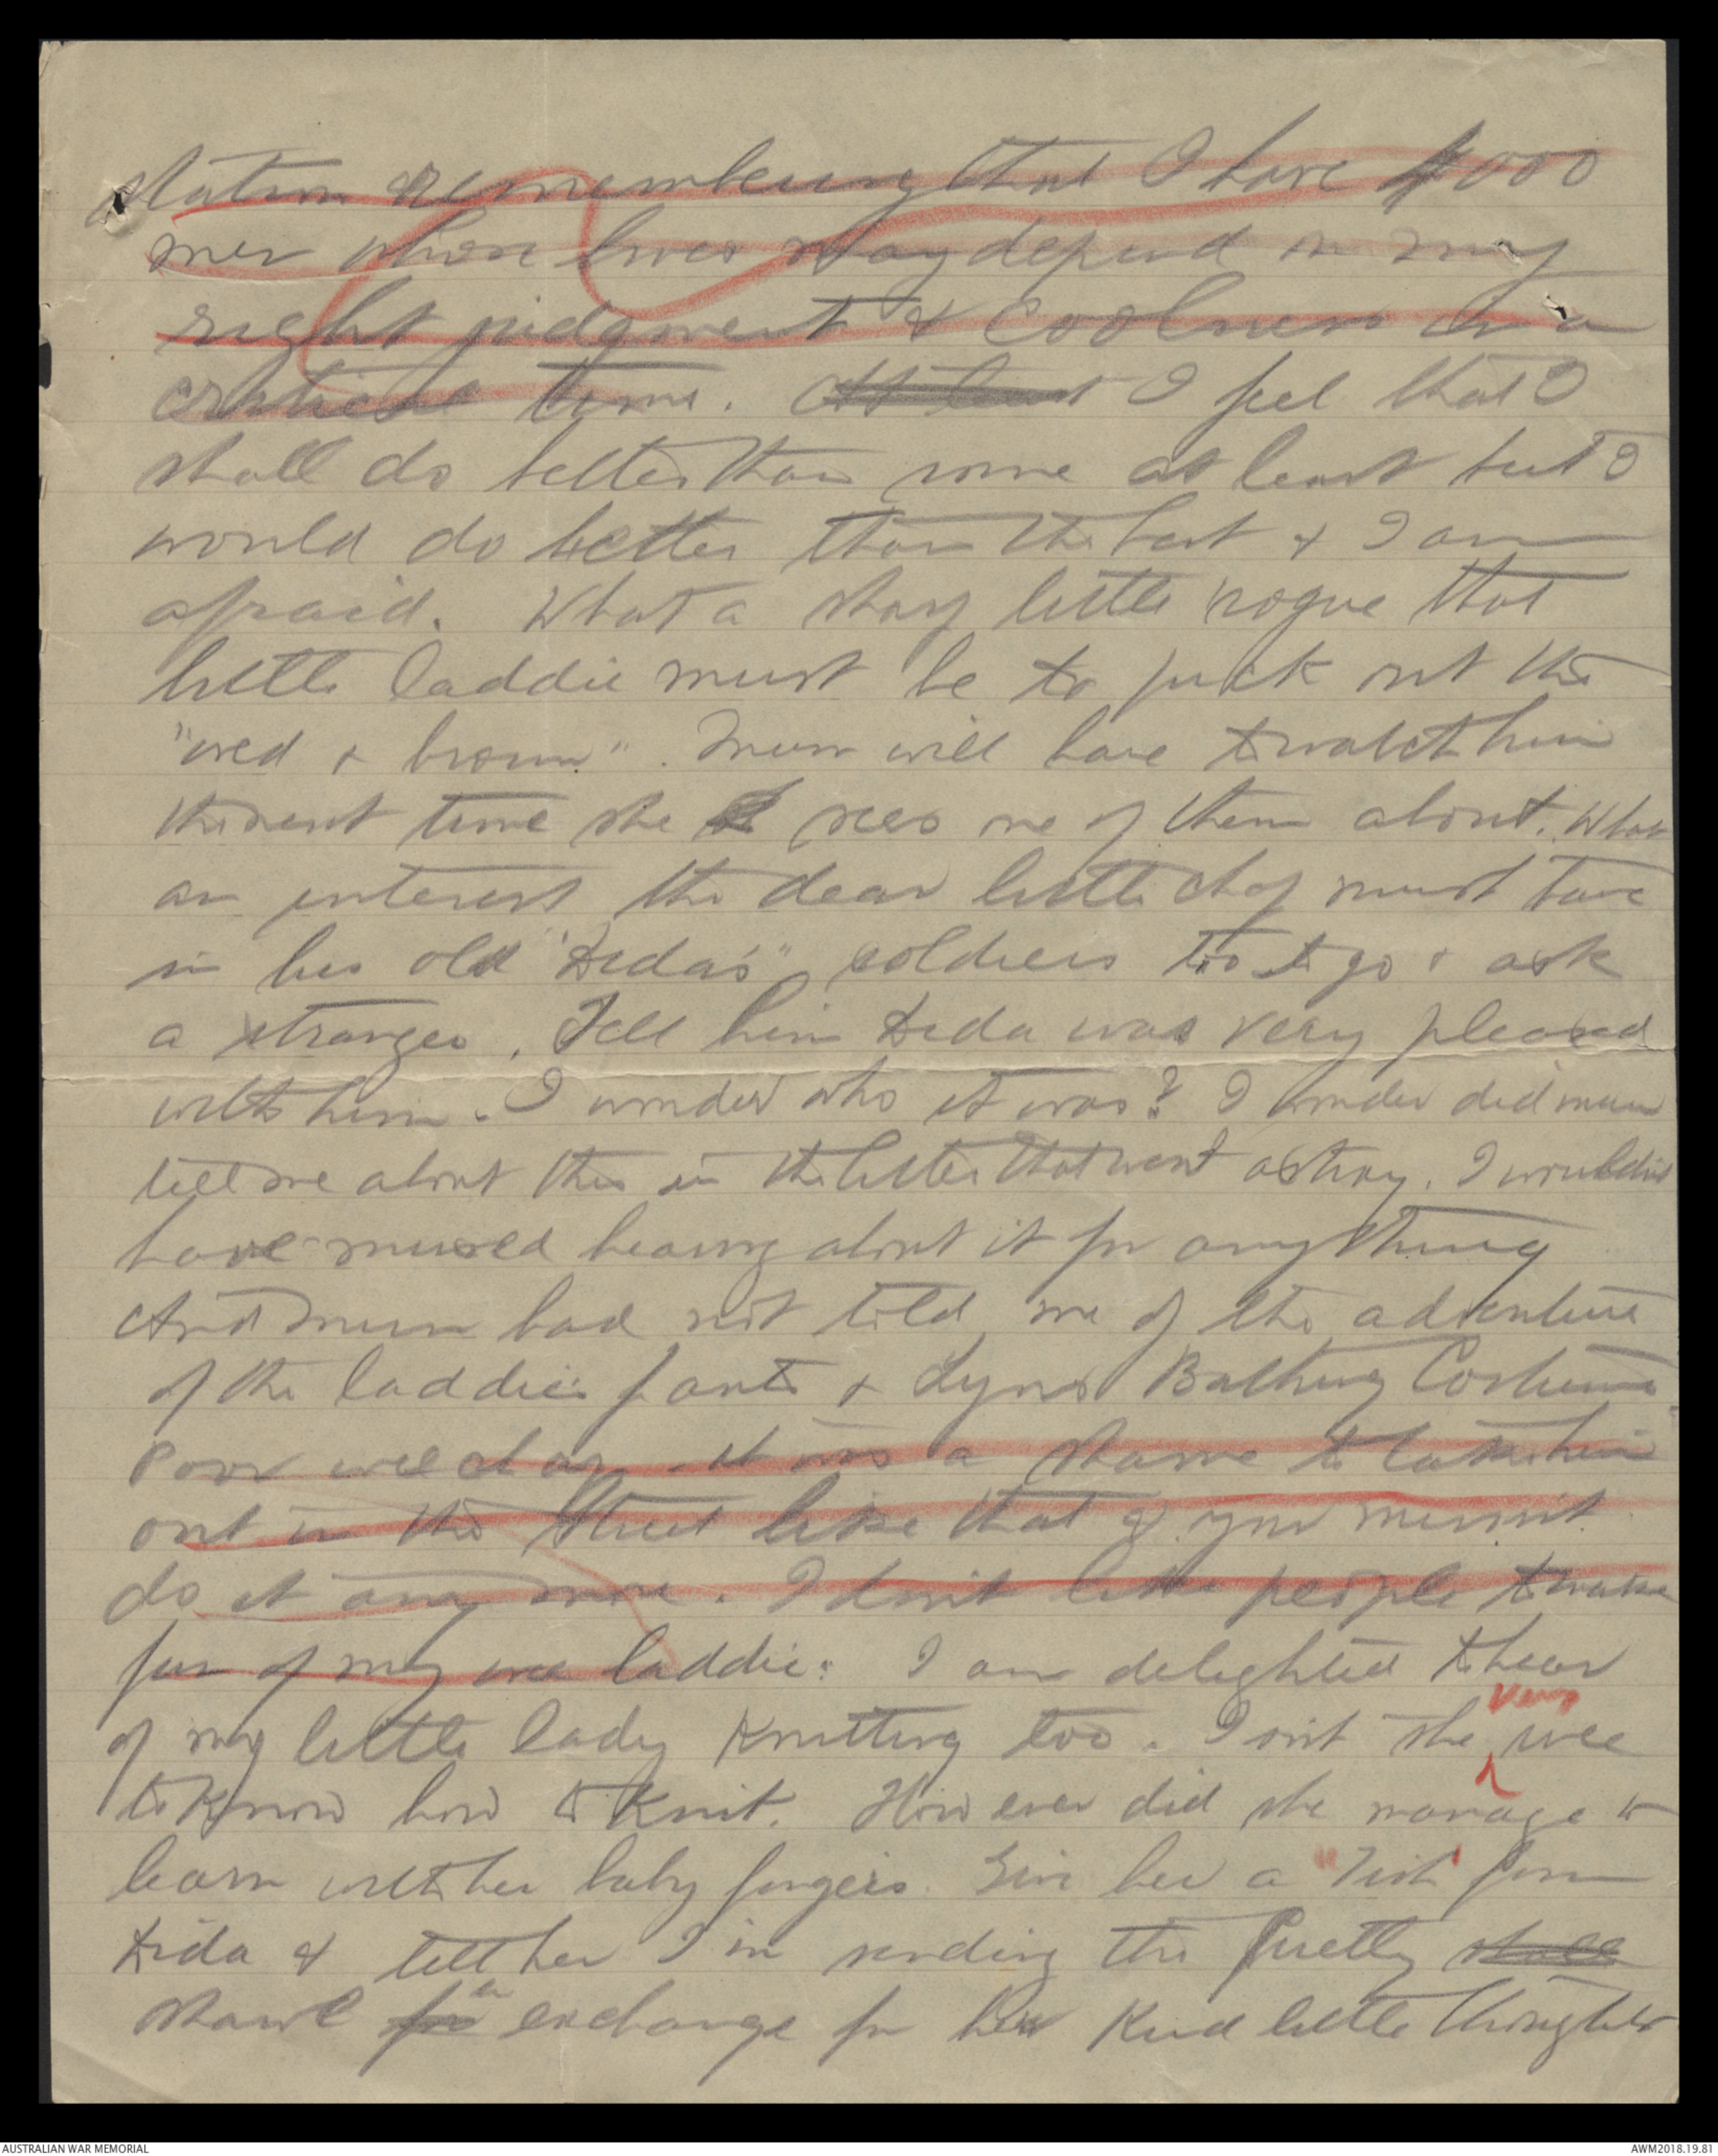 station remembering that I have 4000
men whose lives may depend on my
right judgment & coolness in a
critical time. At least I feel that I
shall do better than some at least but I
would do better than the best & I am
afraid. What a sharp little rogue that
little laddie must be to pick out the
"wed & brown". Mum will have to watch him
the next time she sees one of them about. What
an interest the dear little chap must have
in his old "Dida's" soldiers too to go & ask
a stranger. Tell him Dida was very pleased
with him. I wonder who it was? I wonder did mum
tell me about this in the letter that went astray. I wouldn't
have missed hearing about it for anything
And mum had not told me of the adventure
of the laddie's pants & Lyn's Bathing Costume
Poor wee chap it was a shame to take him
out in the street like that & you mussn't
do it any more. I don't like people to make
fun of my wee laddie. I am delighted to hear
of my little lady Knitting too. Isn't she very wee
to Know how to Knit. How ever did she manage to
learn with her baby fingers. Give her a "Tiss" from
Dida & tell her I'm sending the pretty shall
shawl for in exchange for her Kind little thoughts
AUSTRALIAN WAR MEMORIAL
AWM2018.19.81